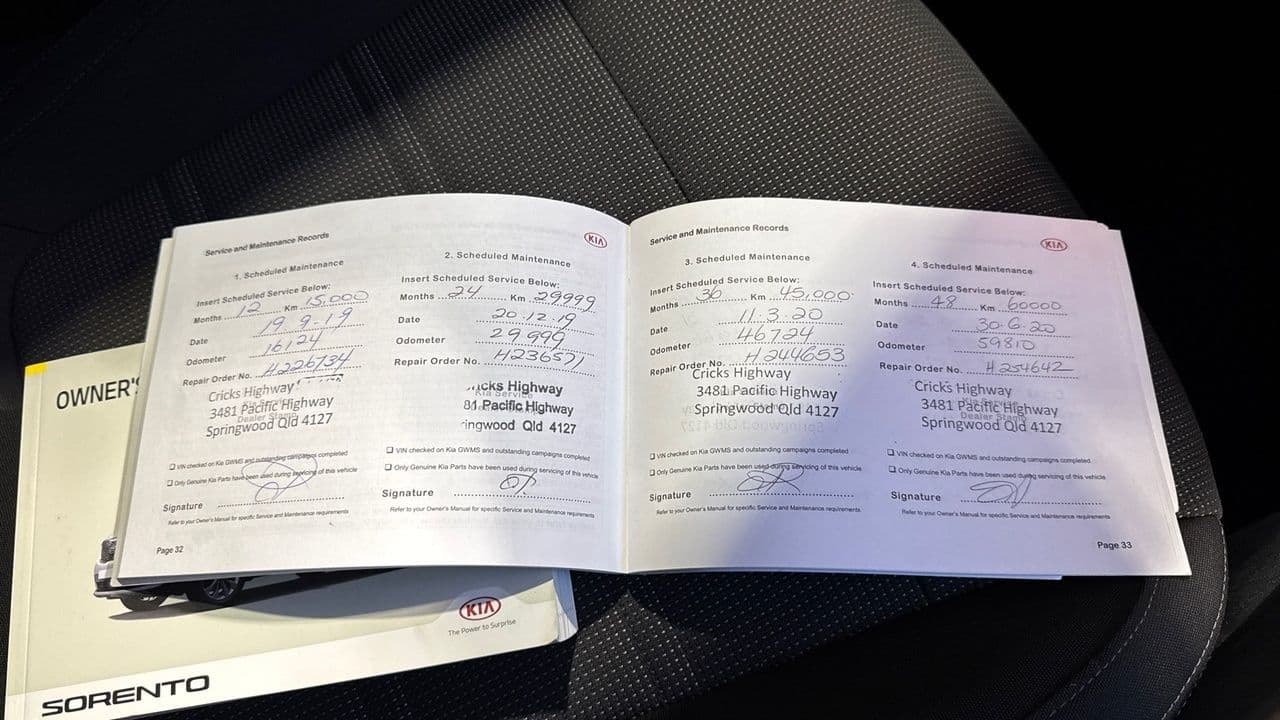 Service and Maintenance Records
KIA
1. Scheduled Maintenance
Insert Scheduled Service Below:
Months 12 Km 15,000
Date 19.9.19
Odometer 16124
Repair Order No. H226734
Cricks Highway
3481 Pacific Highway
Dealer Stamp
Springwood Qld 4127
❑ VIN checked on Kia GWMS and outstanding campaigns completed
❑ Only Genuine Kia Parts have been used during servicing of this vehicle
Signature
Refer to your Owner's Manual for specific Service and Maintenance requirements
Page 32
2. Scheduled Maintenance
Insert Scheduled Service Below:
Months 24 Km 29999
Date 20.12.19
Odometer 29999
Repair Order No. H236571
icks Highway
Kia Service
81 Pacific Highway
ringwood Qld 4127
❑ VIN checked on Kia GWMS and outstanding campaigns completed
❑ Only Genuine Kia Parts have been used during servicing of this vehicle
Signature
Refer to your Owner's Manual for specific Service and Maintenance requirements
Service and Maintenance Records
KIA
3. Scheduled Maintenance
Insert Scheduled Service Below:
Months 36 Km 45,000
Date 11.3.20
Odometer 46724
Repair Order No. H244653
Cricks Highway
3481 Pacific Highway
Springwood Qld 4127
❑ VIN checked on Kia GWMS and outstanding campaigns completed
❑ Only Genuine Kia Parts have been used during servicing of this vehicle
Signature
Refer to your Owner's Manual for specific Service and Maintenance requirements
4. Scheduled Maintenance
Insert Scheduled Service Below:
Months 48 Km 60000
Date 30.6.20
Odometer 59810
Repair Order No. H254642
Cricks Highway
Kia Service
3481 Pacific Highway
Dealer Stamp
Springwood Qld 4127
❑ VIN checked on Kia GWMS and outstanding campaigns completed
❑ Only Genuine Kia Parts have been used during servicing of this vehicle
Signature
Refer to your Owner's Manual for specific Service and Maintenance requirements
Page 33
OWNER'S
KIA
The Power to Surprise
SORENTO